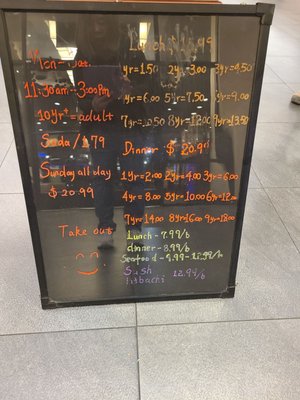 Mon-Sat.
11:30am-3:00pm
10yr+=adult
Soda/1.79
Sunday all day
$20.99
Take out
Lunch
1yr=1.50 2yr=3.00 3yr=4.50
4yr=6.00 5yr=7.50 6yr=9.00
7yr=10.50 8yr=12.00 9yr=13.50
Dinner $20.99
1yr=2.00 2yr=4.00 3yr=6.00
4yr=8.00 5yr=10.00 6yr=12.00
7yr=14.00 8yr=16.00 9yr=18.00
Lunch-7.99/b
dinner-8.99/b
Seafood-9.99-
Sush
hibachi 12.99/b